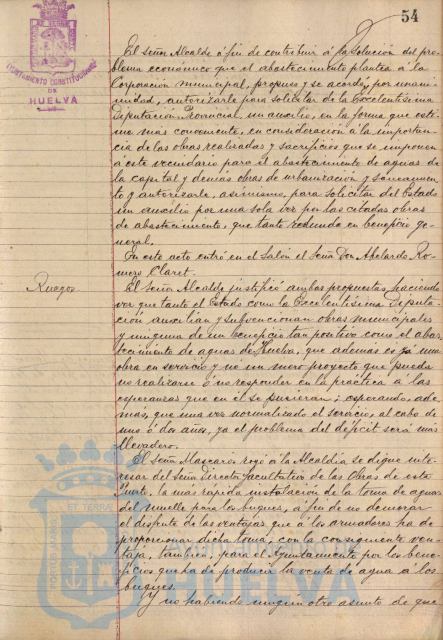 54
AYUNTAMIENTO CONSTITUCIONAL
DE
HUELVA
El Señor Alcalde á fin de contribuir á la solución del pro-
blema económico que el abastecimiento plantea á la
Corporación municipal, propuso y se acordó, por unani-
midad, autorizarle para solicitar de la Excelentísima
Diputación Provincial un auxilio, en la forma que esti-
me más conveniente, en consideración á la importan-
cia de las obras realizadas y sacrificios que se imponen
á este vecindario para el abastecimiento de aguas de
la capital y demás obras de urbanización y saneamien-
to y autorizarle, asimismo, para solicitar del Estado
un auxilio por una sola vez por las citadas obras
de abastecimiento, que tanto redunda en beneficio ge-
neral.
En este acto entró en el Salón el Señor Don Abelardo Ro-
mero Claret.
Ruegos
El Señor Alcalde justificó ambas propuestas, haciendo
ver que tanto el Estado como la Excelentísima Diputa-
ción auxilian y subvencionan obras municipales
y ninguna de un beneficio tan positivo como el abas-
tecimiento de aguas de Huelva, que además es ya una
obra en servicio y no un mero proyecto que pueda
no realizarse ó no responder en la práctica á las
esperanzas que en él se pusieran; esperando, ade-
más, que una vez normalizado el servicio, al cabo de
uno ó dos años, ya el problema del déficit será más
llevadero.
El Señor Mascarós rogó á la Alcaldía se digne inte-
resar del Señor Director facultativo de las Obras de este
Puerto, la más rápida instalación de la toma de aguas
del muelle para los buques, á fin de no demorar
el disfrute de las ventajas que á los armadores ha de
proporcionar dicha toma, con la consiguiente ven-
taja, también, para el Ayuntamiento por los bene-
ficios que ha de producir la venta de agua á los
buques.
Y no habiendo ningún otro asunto de que
HUELVA